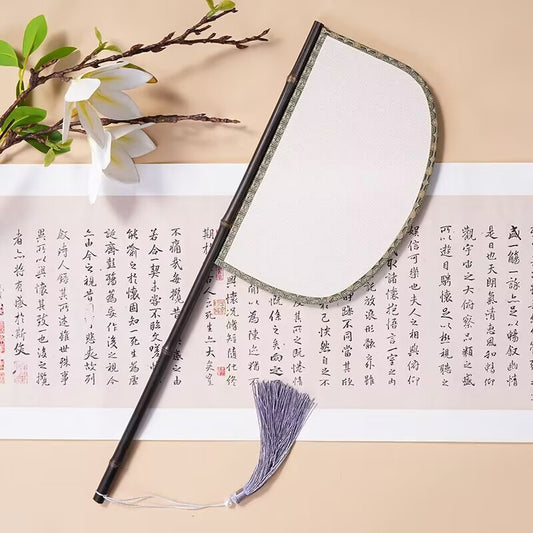 盛一觴一詠亦足以暢叙幽情
是日也天朗氣清惠風和暢仰
觀宇宙之大俯察品類之盛
所以遊目騁懷足以極視聽
娛信可樂也夫人之相與俯仰
取諸懷抱悟言一室之內
放浪形骸之外雖
躁不同當其欣
己快然自足不
之矣向之
以為陳迹猶不
懷況脩短隨化終
期於 死生亦大矣豈
不痛哉每攬昔 感之由
若合一契未嘗不臨文嗟悼
能喻之於懷固知一死生為虛
誕齊彭殤為妄作後之視今
亦由今之視昔 悲夫故列
叙時人錄其所述雖世殊事
異所以興懷其致一也後之攬
者亦將有感於斯文